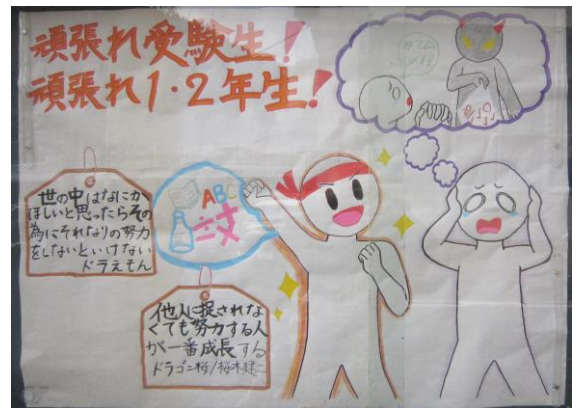 頑張れ受験生!
頑張れ1・2年生!
世の中はなにか
ほしいと思ったらその
為にそれなりの努力
をしないといけない
ドラえもん
ABC
他人に捉されな
くても努力する人
が一番成長する
ドラゴン桜/桜木建二